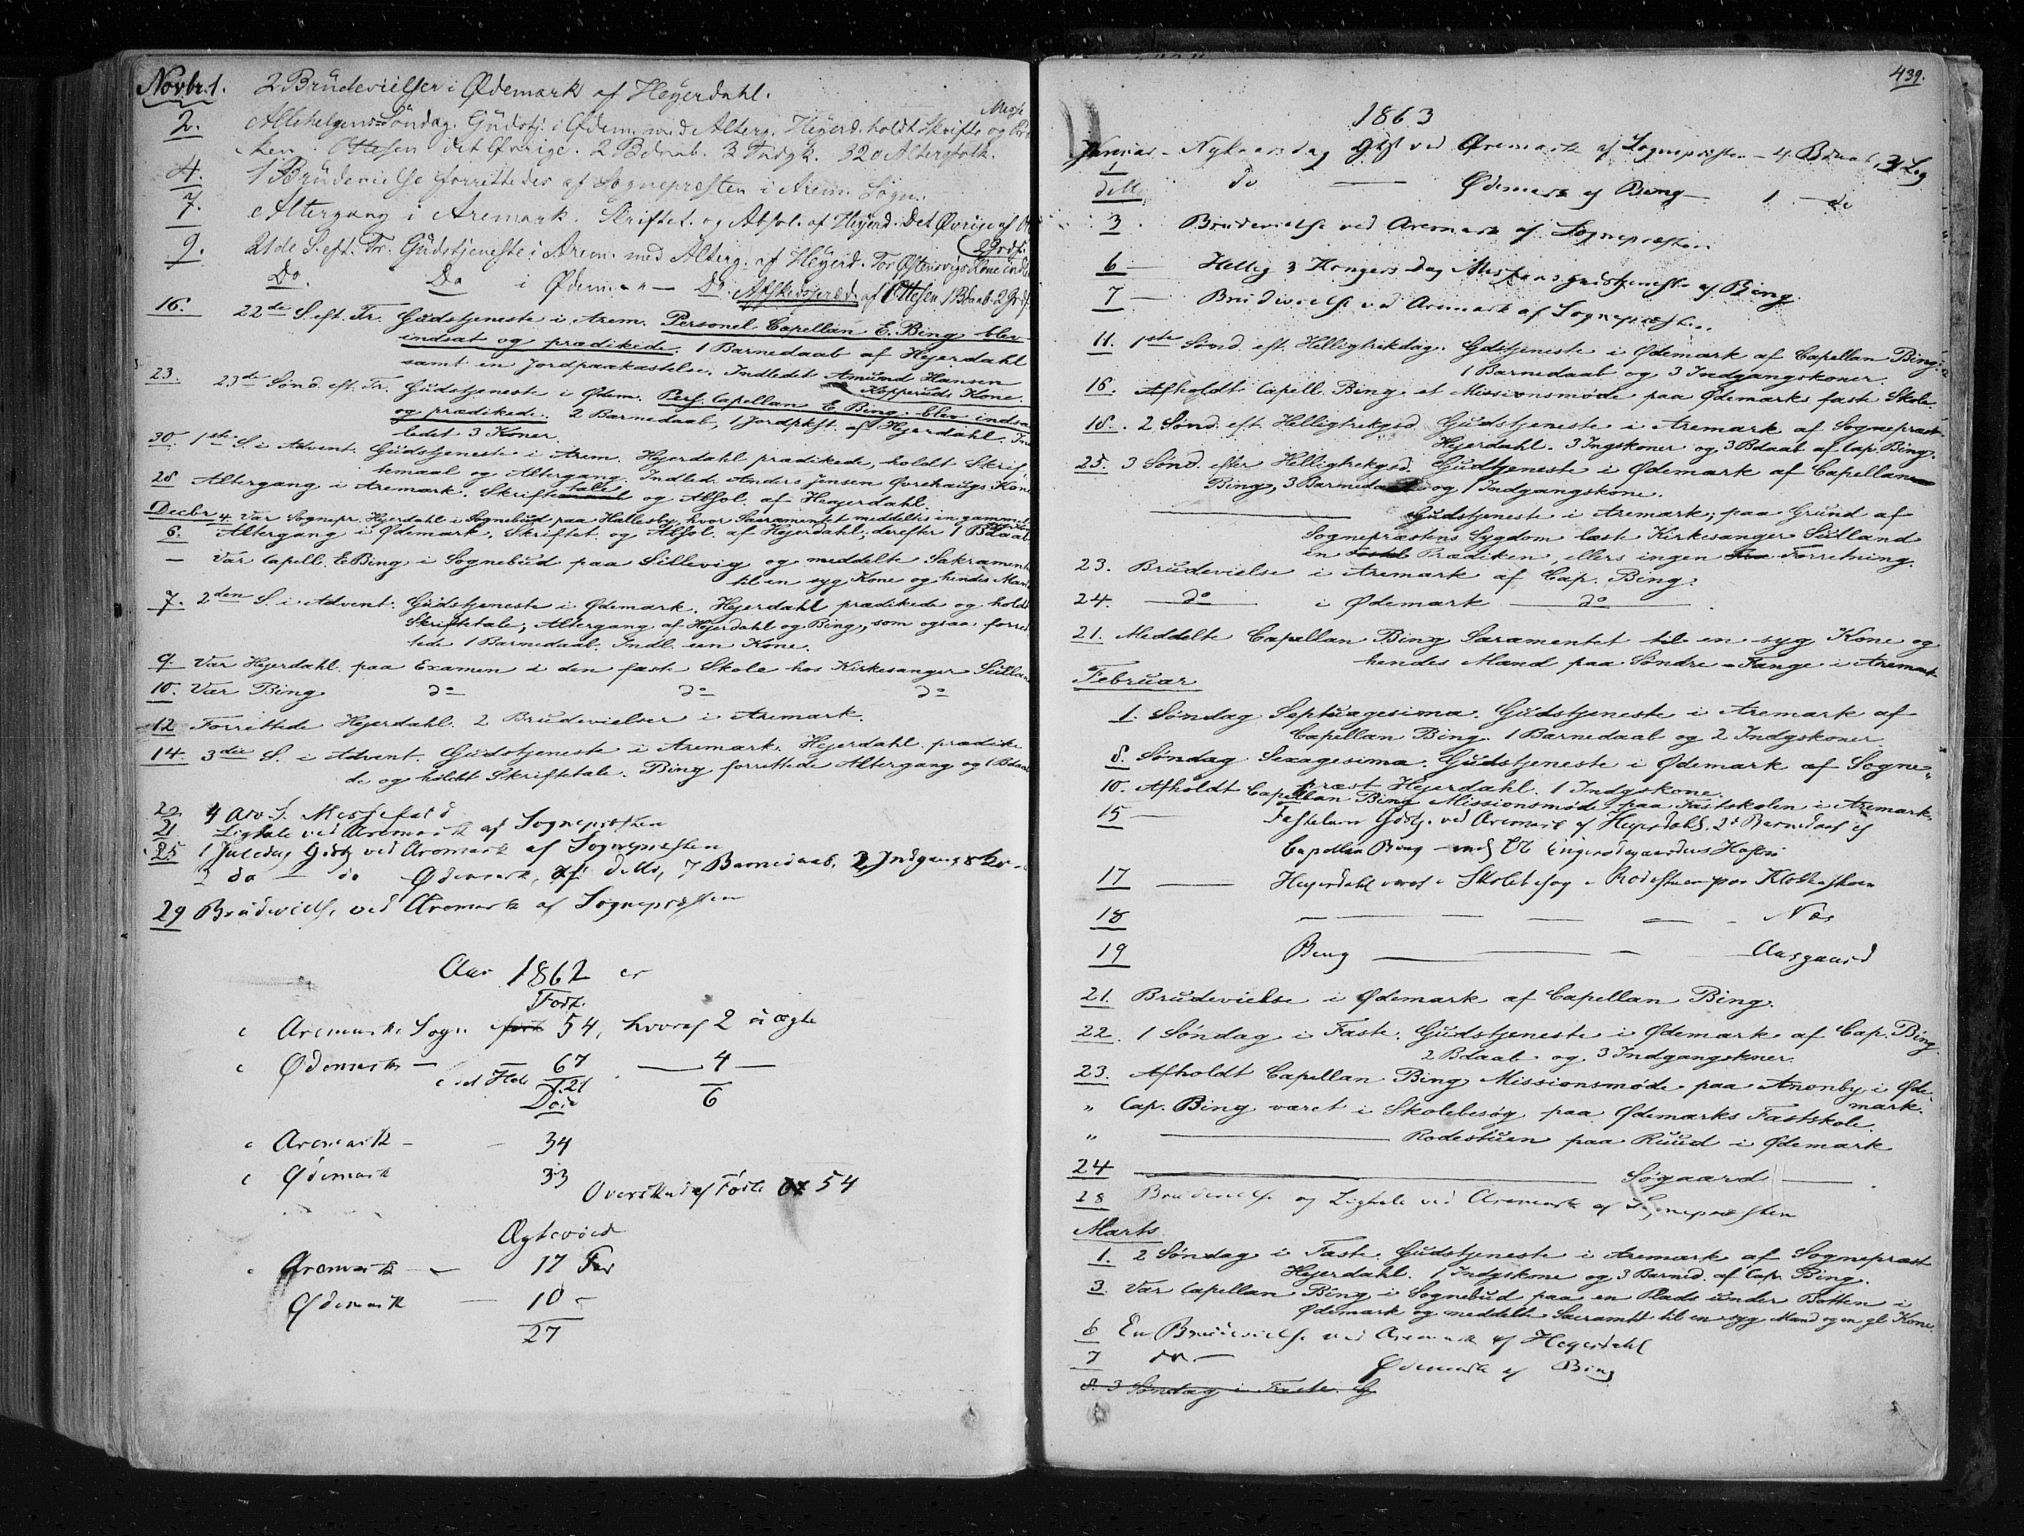 Novbr. 1. 2 Brüdevielser i Ødemark af Heyerdahl.
2. Allehelgens Søndag. Güdstj. i Ødem. med Alterg. Heyerd. holdt Skrifte og Messe
ken. Ottesen det Øvrige. 2 Bdaab. 3 Indgk. 32 Altergfolk.
4. 1 Brüdevielse forrettedes af Sognepresten i Arem. Sogn.
7. Altergang i Aremark. Skriftet. og Absol. af Heyerd. Det Øvrige af
9. 21de S. eft. Tr. Güdstjeneste i Arem. med Alterg. af Heyerd. Tor Østensvigs Kone indl.
Do. Do i Ødem. — Do. Afskedspræd. af Ottesen. 1 Bdaab. 2 Jrdf.
16. 22de S. eft. Tr. Güdstjeneste i Arem. Personel Capellan E. Bing blev
indsat og prædikede. 1 Barnedaab af Hejerdahl
samt en Jordpaakastelse. Indledet Amünd Hansen
Kopperüds Kone.
23. 23de Sønd. eft. Tr. Güdstjeneste i Ødem. Pers. Capellan E. Bing blev indsat
og prædikede. 2 Barnedaab, 1 Jordpkst. af Hejerdahl. Ind
ledet 3 Koner.
30. 1ste S. i Advent. Güdstjeneste i Arem. Hejerdahl prædikede, holdt Skrif-
temaal og Altergang. Indled. Anders Jensen Gorehaugs Kone
28 Altergang i Aremark. Skriftetale og Absol. af Heyerdahl.
Decbr 4. Var Sognepr. Hejerdahl i Sognebud paa Hallesby, hvor Sacramentet meddeltes en gammel
6. Altergang i Ødemark. Skriftet. og Absol. af Hejerdahl; derefter 1 Bdaab
— Var Capell. E Bing i Sognebud paa Sillevig og meddelte Sakrament
til en syg Kone og hendes Mand
7. 2den S. i Advent. Güdstjeneste i Ødemark. Hejerdahl prædikede og holdt
Skriftetale; Altergang af Hejerdahl og Bing, som ogsaa forret
tede 1 Barnedaab. Indl. een Kone.
9. Var Hejerdahl paa Examen i den faste Skole hos Kirkesanger Sülland
10. Var Bing do do do
12 Forrettede Hejerdahl 2 Brudevielser i Aremark.
14. 3die S. i Advent. Güdstjeneste i Aremark. Hejerdahl prædike
de og holdt Skriftetale. Bing forrettede Altergang og 1 Bdaab
22 4 Adv. S. Messefald
21 Ligtale ved Aremark af Sognepresten
25 1 Juledag Gdstj ved Aremark af Sognepresten
2 do — do Ødemark, af do, 7 Barnedaab, 2 Indgangsko
29 Brüdevielse ved Aremark af Sognepresten
Aar 1862 er
Født.
i Aremarks Sogn født 54, hvoraf 2 uægte
i Ødemark — 67 — 4 —
i det Hele 121 6
Døde
i Aremark — — 34
i Ødemark 33
Overskud af Fødte 54
Ægteviede
i Aremark — — 17 Par
Ødemark — 10 -
27
439.
1863
Januar 1 - Nytaarsdag Gdst ved Aremark af Sognepresten - 4 Bdaab, 3 Lig
do do — Ødemark af Bing — 1 — do
3 Brüdevielse ved Aremark af Sognepresten.
6 — Hellig 3 Kongers Dag Missionsgudstjeneste af Bing.
7 — Brüdevielse ved Aremark af Sognepresten.
11. 1ste Sønd. eft. Helligtrekdag. Gdstjeneste i Ødemark af Capellan Bing.
1 Barnedaab og 3 Indgangskoner.
16. Afholdt Capell. Bing et Missionsmøde paa Ødemarks faste Skole.
18. 2 Sønd. eft. Helligtrekgsd. Güdstjeneste i Aremark af Sognepræst
Hejerdahl. 3 Ingskoner og 3 Bdaab af Cap. Bing.
25. 3 Sønd. efter Helligtrekgsd. Güdtjeneste i Ødemark af Capellan
Bing, 3 Barnedaab og 1 Indgangskone.
— Güdstjeneste i Aremark; paa Grund af
Sognepræstens Sygdom læste Kirkesanger Sülland
en Prædiken ellers ingen Forretning.
23. Brüdevielse i Aremark af Cap. Bing.
24. — do i Ødemark — do —
21. Meddelte Capellan Bing Saramentet til en syg Kone og
hendes Mand paa Søndre-Tange i Aremark.
Februar
1. Søndag Septuagesima. Güdstjeneste i Aremark af
Capellan Bing. 1 Barnedaab og 2 Indgskoner
8. Søndag Sexagesima. Güdstjeneste i Ødemark af Sogne-
præst Hejerdahl. 1 Indgskone.
10. Afholdt Capellan Bing Missionsmøde paa Fastskolen i Aremark.
15 — Fastelavn Gdstj. ved Aremark af Heyerdahl. 2 Barnedaab af
Capellan Bing —
17 — Heyerdahl været i Skolebesøg i Rodestuen paa
18 — — — — — Næs
19 Bing — — Aasgaard
21. Brudevielse i Ødemark af Capellan Bing.
22. 1 Søndag i Faste. Güdstjeneste i Ødemark af Cap. Bing.
2 Bdaab og 3 Indgangskoner.
23. Afholdt Capellan Bing Missionsmøde paa Anonby i Øde-
mark.
" Cap. Bing været i Skolebesøg paa Ødemarks Fastskole.
" — Rodestüen paa Ruud i Ødemark
24 — Søgaard —
28 Brudevielse og Ligtale ved Aremark af Sognepresten
Marts
1. 2 Søndag i Faste. Güdstjeneste i Aremark af Sognepræst
Hejerdahl. 1 Indgskone og 3 Barned. af Cap. Bing.
3. Var Capellan Bing i Sognebud paa en Plads under Botten i
Ødemark og meddelte Sacramtt til en syg Mand og en gl. Kone.
6 En Brüdevielse ved Aremark af Hegerdahl
7 do — Ødemark af Bing
8. 3 Søndag i Faste. G